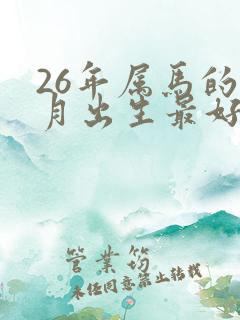 26年属马的
月出生最好
管業筠
未经同意禁止转载